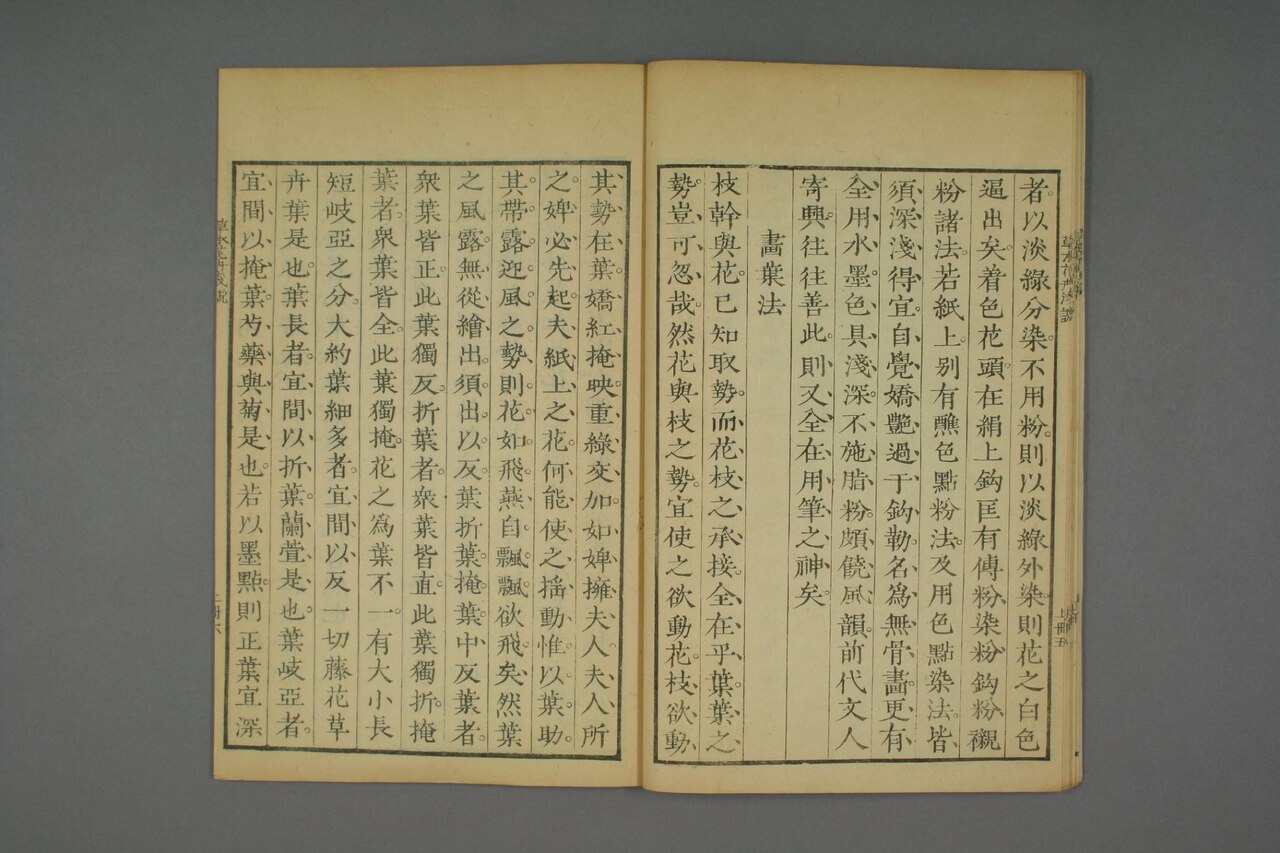 者以淡綠分染不用粉則以淡綠外染則花之白色
逼出矣着色花頭在絹上鈎匡有傳粉染粉鈎粉襯
粉諸法若紙上别有蘸色點粉法及用色點染法皆
須深淺得宜自覺嬌艷過于鈎勒名為無骨畫更有
全用水墨色具淺深不施脂粉頗饒風韻前代文人
寄興往往善此則又全在用筆之神矣
畫葉法
枝幹與花已知取勢而花枝之承接全在乎葉葉之
勢豈可忽哉然花與枝之勢宜使之欲動花枝欲動
其勢在葉嬌紅掩映重綠交加如婢擁夫人夫人所
之婢必先起夫紙上之花何能使之搖動惟以葉助
其帶露迎風之勢則花如飛燕自飄飄欲飛矣然葉
之風露無從繪出須出以反葉折葉掩葉中反葉者
衆葉皆正此葉獨反折葉者衆葉皆直此葉獨折掩
葉者衆葉皆全此葉獨掩花之為葉不一有大小長
短岐亞之分大約葉細多者宜間以反一切藤花草
卉葉是也葉長者宜間以折葉蘭萱是也葉岐亞者
宜間以掩葉芍藥與菊是也若以墨點則正葉宜深